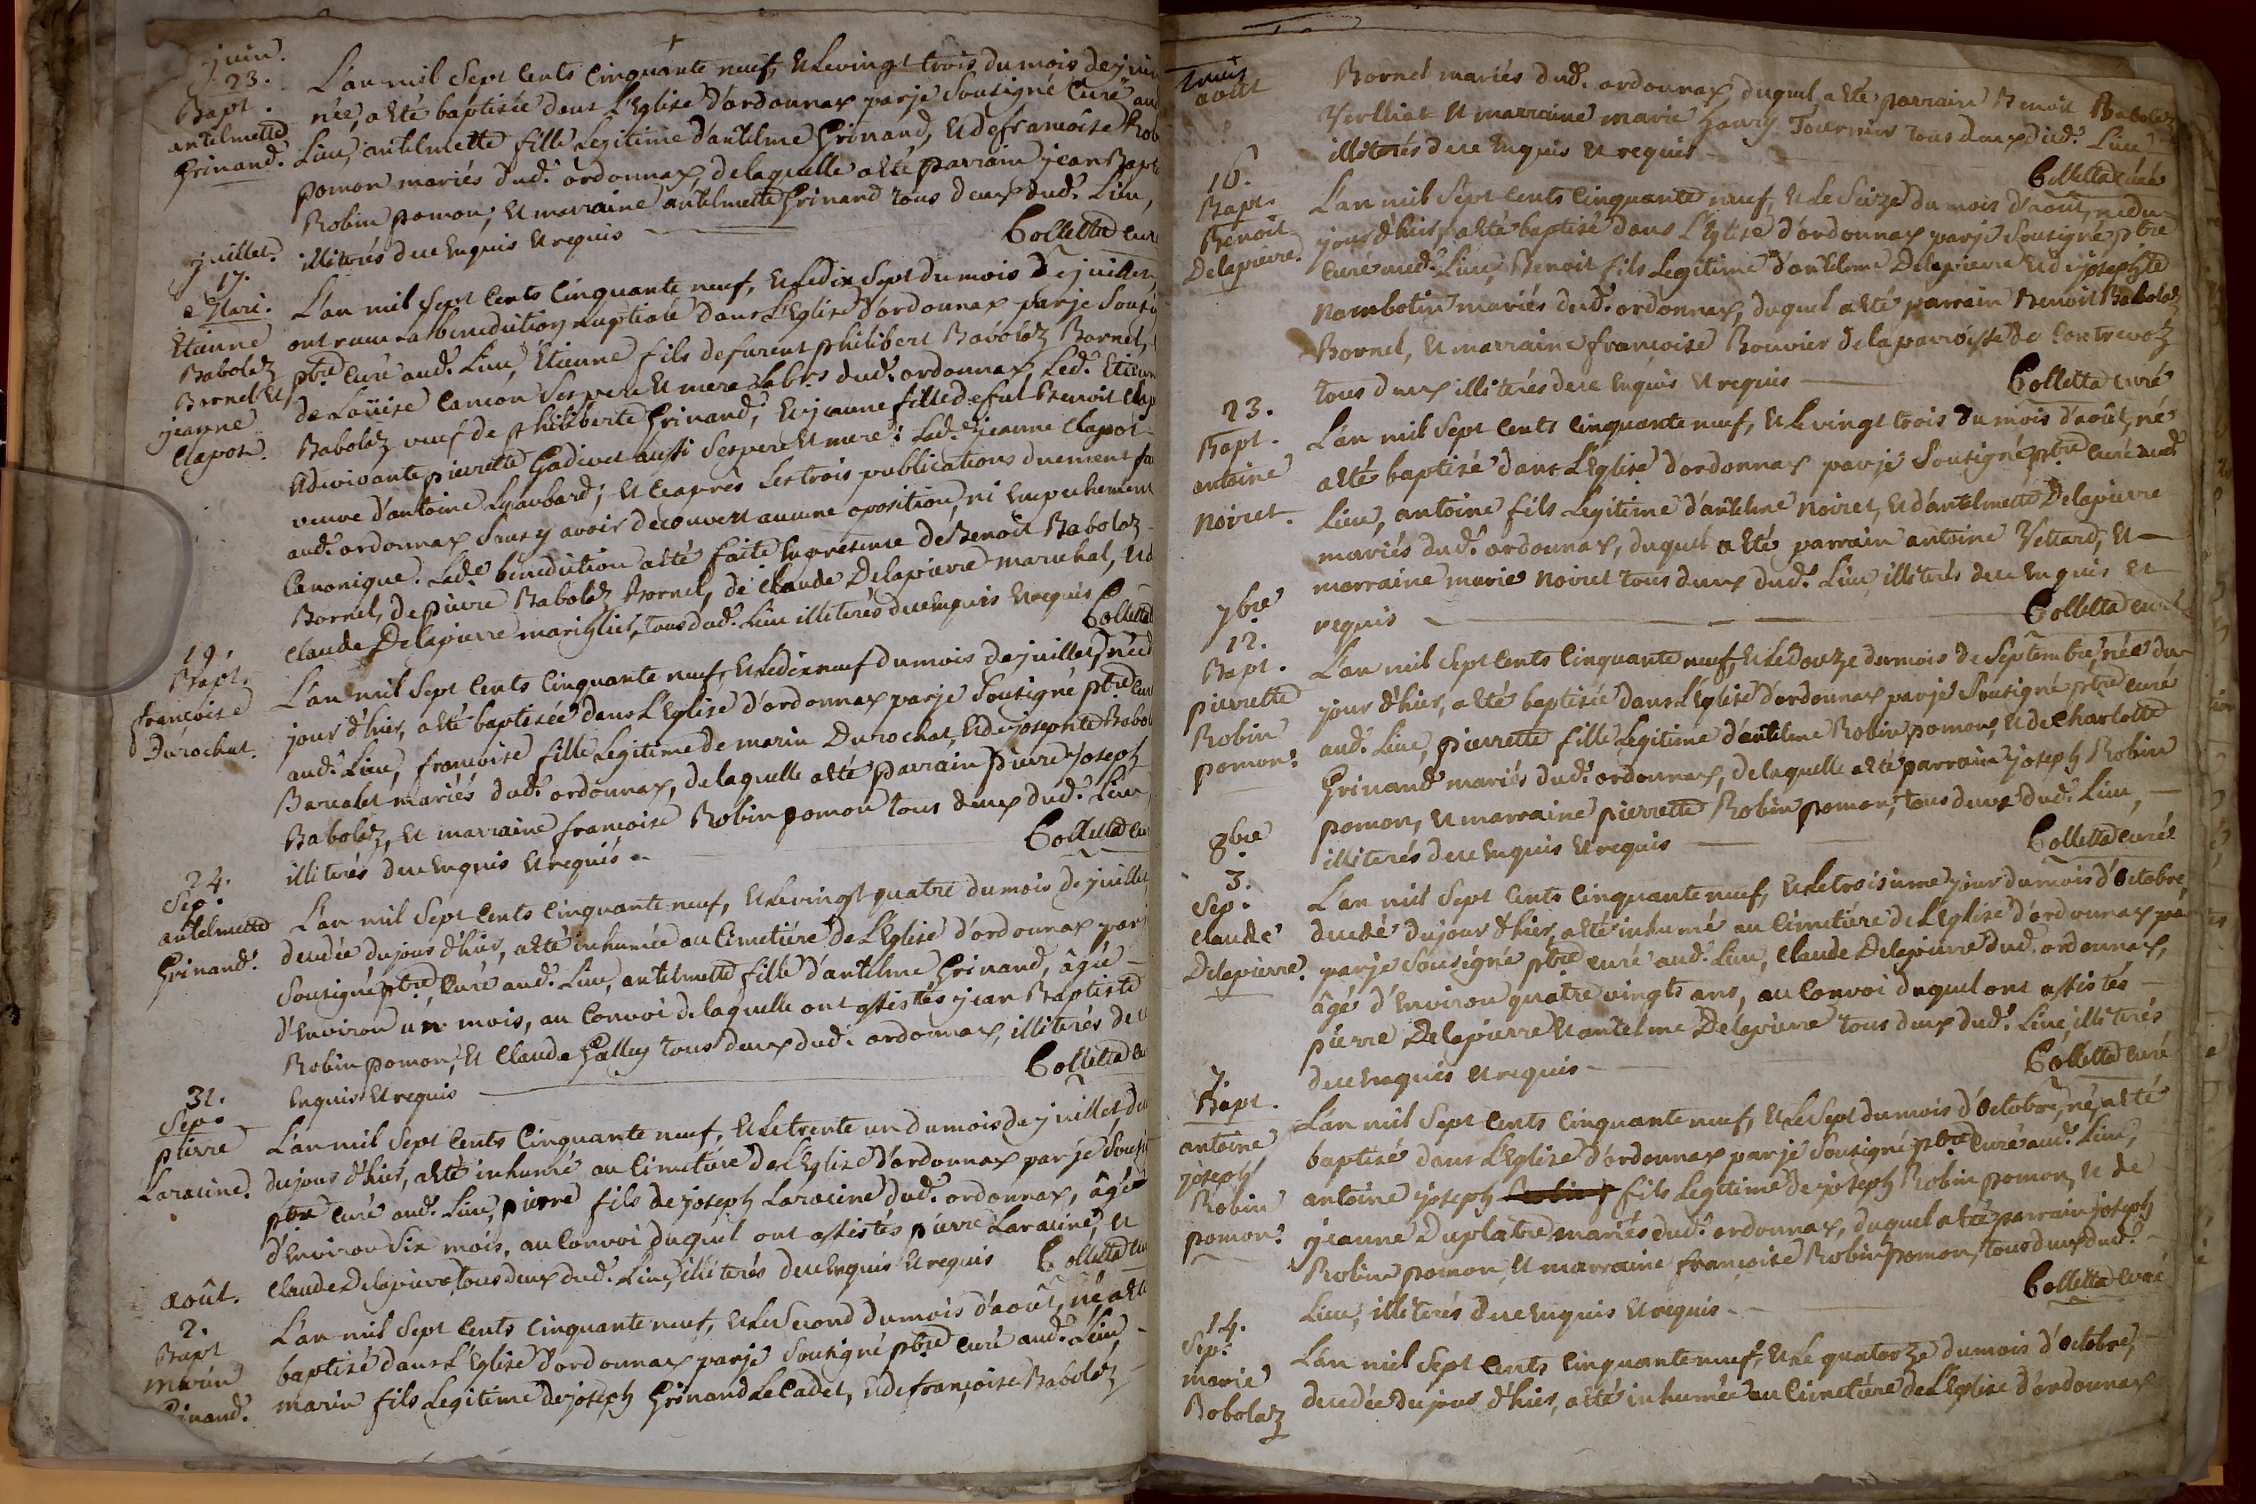 juin.
23.
Bapt.
antelmette
Grinand.
L'an mil sept cents cinquante neuf, et le vingt trois du mois de juin
née, a été baptisée dans l'Eglise d'ordonnax par je sousigné curé aud
Lieu, antelmette fille Legitime d'antelme Grinand, et de francoise Rob
pomon mariés dud.t ordonnax, de laquelle a été parrain jean Bapt
Robin pomon, et marraine antelmette Grinand tous deux dud.t Lieu,
illiterés de ce enquis et requis
Colletta curé
juillet.
17.
Mari.
Etienne
Babolaz
Bornel et
jeanne
Clapot.
L'an mil sept cents cinquante neuf, et le dix sept du mois de juillet,
ont reçu la benediction nuptiale dans l'Eglise d'ordonnax par je sousi
ptre curé aud.t Lieu, Etienne fils de furent philibert Babolaz Bornel,
de Loüise camon ses pere et mere Lab.rs dud.t ordonnax, Led.t Etienne
Babolaz veuf de philiberte Grinand; et jeanne fille de fut Benoit Clap
et de vivante pierrette Gadivet aussi ses pere et mere; Lad.e jeanne Clapot
veuve d'antoine Lyaubard; et ce après Les trois publications duement fa
aud.t ordonnax sans y avoir decouvert aucune oposition, ni empechement
Canonique. Lad.e benediction a été faite en presence de Benoit Babolaz
Bornel, de pierre Babolaz Bornel, de claude Delapierre marechal, et d
claude Delapierre mariglier, tous dud.t Lieu illiterés de ce enquis et requis
Colletta
19.
Bapt.
françoise
Durochat.
L'an mil sept cents cinquante neuf, et le dix neuf du mois de juillet, née d
jour d'hier, a été baptisée dans l'Eglise d'ordonnax par je sousigné ptre cur
aud.t Lieu, francoise fille Legitime de marin Durochat, et de josephte Babol
Barcalet mariés dud.t ordonnax, de laquelle a été parrain pierre joseph
Babolaz, et marraine francoise Robin pomon tous deux dud.t Lieu
illiterés de ce enquis et requis
Colletta cur
24.
Sep.
antelmette
Grinand.
L'an mil sept cents cinquante neuf, et le vingt quatre du mois de juillet
decedée du jour d'hier, a été inhumée au Cimetiére de l'Eglise d'ordonnax par j
sousigné ptre, curé aud.t Lieu, antelmette fille d'antelme Grinand, âgée
d'environ un mois, au convoi de laquelle ont assistés jean Baptiste
Robin pomon, et claude Galley tous deux dud.t ordonnax, illiterés de c
enquis et requis
Colletta cu
31.
Sep.
pierre
Laracine.
L'an mil sept cents cinquante neuf, et le trente un du mois de juillet, de
du jour d'hier, a été inhumé au Cimetiére de l'Eglise d'ordonnax par je sousi
ptre curé aud.t Lieu, pierre fils de joseph Laracine dud.t ordonnax, âgé
d'environ six mois, au convoi duquel ont assistés pierre Laracine, et
claude Delapierre, tous deux dud.t Lieu, illiterés de ce enquis et requis
Colletta cur
août.
2.
Bapt
marin
Grinand.
L'an mil sept cents cinquante neuf, et le second du mois d'août, né a été
baptisé dans l'Eglise d'ordonnax par je sousigné ptre curé aud.t Lieu,
marin fils Legitime de joseph Grinand Le Cadet, et de françoise Babolaz
août
Bornel mariés dud.t ordonnax, duquel a été parrain Benoit Babolaz
Verlliat et marraine marie Tournier tous deux dud.t Lieu
illiterés de ce enquis et requis
Colletta curé
16.
Bapt.
Benoit
Delapierre.
L'an mil sept cents cinquante neuf, et le seize du mois d'août, né du
jour d'hier, a été baptisé dans l'Eglise d'ordonnax par je sousigné ptre
curé aud.t Lieu, Benoit fils Legitime d'antelme Delapierre et de josephte
Nambotin mariés dud.t ordonnax, duquel a été parrain Benoit Babolaz
Bornel, et marraine françoise Bouvier de la parroisse de Contrevoz
tous deux illiterés de ce enquis et requis
Colletta curé
23.
Bapt.
antoine
Noiret.
L'an mil sept cents cinquante neuf, et le vingt trois du mois d'août, né
a été baptisé dans l'Eglise d'ordonnax par je sousigné ptre curé aud
Lieu, antoine fils Legitime d'antelme Noiret, et d'antelmette Delapierre
mariés dud.t ordonnax, duquel a été parrain antoine Vettard, et
marraine marie Noiret tous deux dud.t Lieu illiterés de ce enquis et
requis
Colletta curé
7bre
12.
Bapt.
pierrette
Robin
pomon.
L'an mil sept cents cinquante neuf, et le douze du mois de septembre, née du
jour d'hier, a été baptisée dans l'Eglise d'ordonnax par je sousigné ptre curé
aud.t Lieu, pierrette fille Legitime d'antelme Robin pomon, et de charlotte
Grinand mariés dud.t ordonnax, de laquelle a été parrain joseph Robin
pomon, et marraine pierrette Robin pomon, tous deux dud.t Lieu,
illiterés de ce enquis et requis
Colletta curé
8bre
3.
Sep.
claude
Delapierre.
L'an mil sept cents cinquante neuf, et le troisieme jour du mois d'Octobre,
decedé du jour d'hier, a été inhumé au Cimetiére de l'Eglise d'ordonnax par
par je sousigné ptre curé aud.t Lieu, claude Delapierre dud.t ordonnax,
âgé d'environ quatre vingts ans, au convoi duquel ont assistés
pierre Delapierre et antelme Delapierre tous deux dud.t Lieu, illiterés
de ce enquis et requis
Colletta curé
7
Bapt.
antoine
joseph
Robin
pomon.
L'an mil sept cents cinquante neuf, et le sept du mois d'Octobre, né, a été
baptisé dans l'Eglise d'ordonnax par je sousigné ptre curé aud.t Lieu,
antoine joseph fils Legitime de joseph Robin pomon, et de
jeanne Duplatre mariés dud.t ordonnax, duquel a été parrain joseph
Robin pomon, et marraine françoise Robin pomon, tous deux dud.t
Lieu, illiterés de ce enquis et requis
Colletta curé
14.
Sep.
marie
Bobolaz
L'an mil sept cents cinquante neuf, et le quatorze du mois d'Octobre,
decedée du jour d'hier, a été inhumée au Cimetiére de l'Eglise d'ordonnax